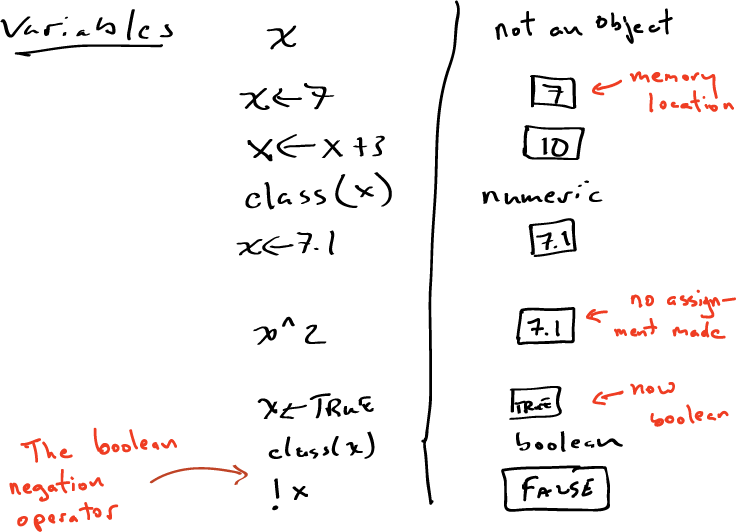 Variables
x not an object
x ← 7 7 ← memory location
x ← x + 3 10
class(x) numeric
x ← 7.1 7.1
x^2 7.1 ← no assign-ment made
x ← TRUE TRUE ← now boolean
class(x) boolean
!x FALSE
The boolean
negation
operator